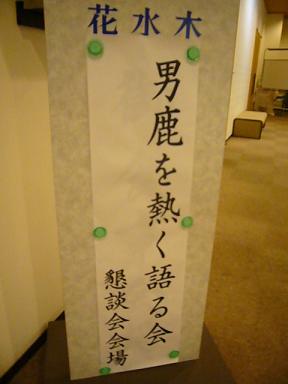 花水木
男鹿を熱く語る会
懇談会会場